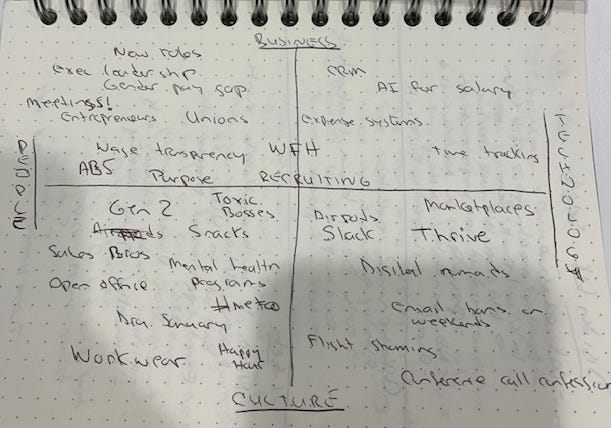 BUSINESS
New roles
exec leadership
Gender pay gap
Meetings!
Entrepreneurs Unions
Wage transparency WFH
AB5
Purpose RECRUITING
CRM
AI for salary
Expense systems
Time tracking
PEOPLE
TECHNOLOGY
Gen Z
Toxic
Bosses
Snacks
Sales Bros
Mental health
programs
Open office
#metoo
Dry January
Workwear
Happy
Hour
Airpods
Marketplaces
Slack Thrive
Digital nomads
Email bans on
weekends
Flight shaming
Conference call confession
CULTURE